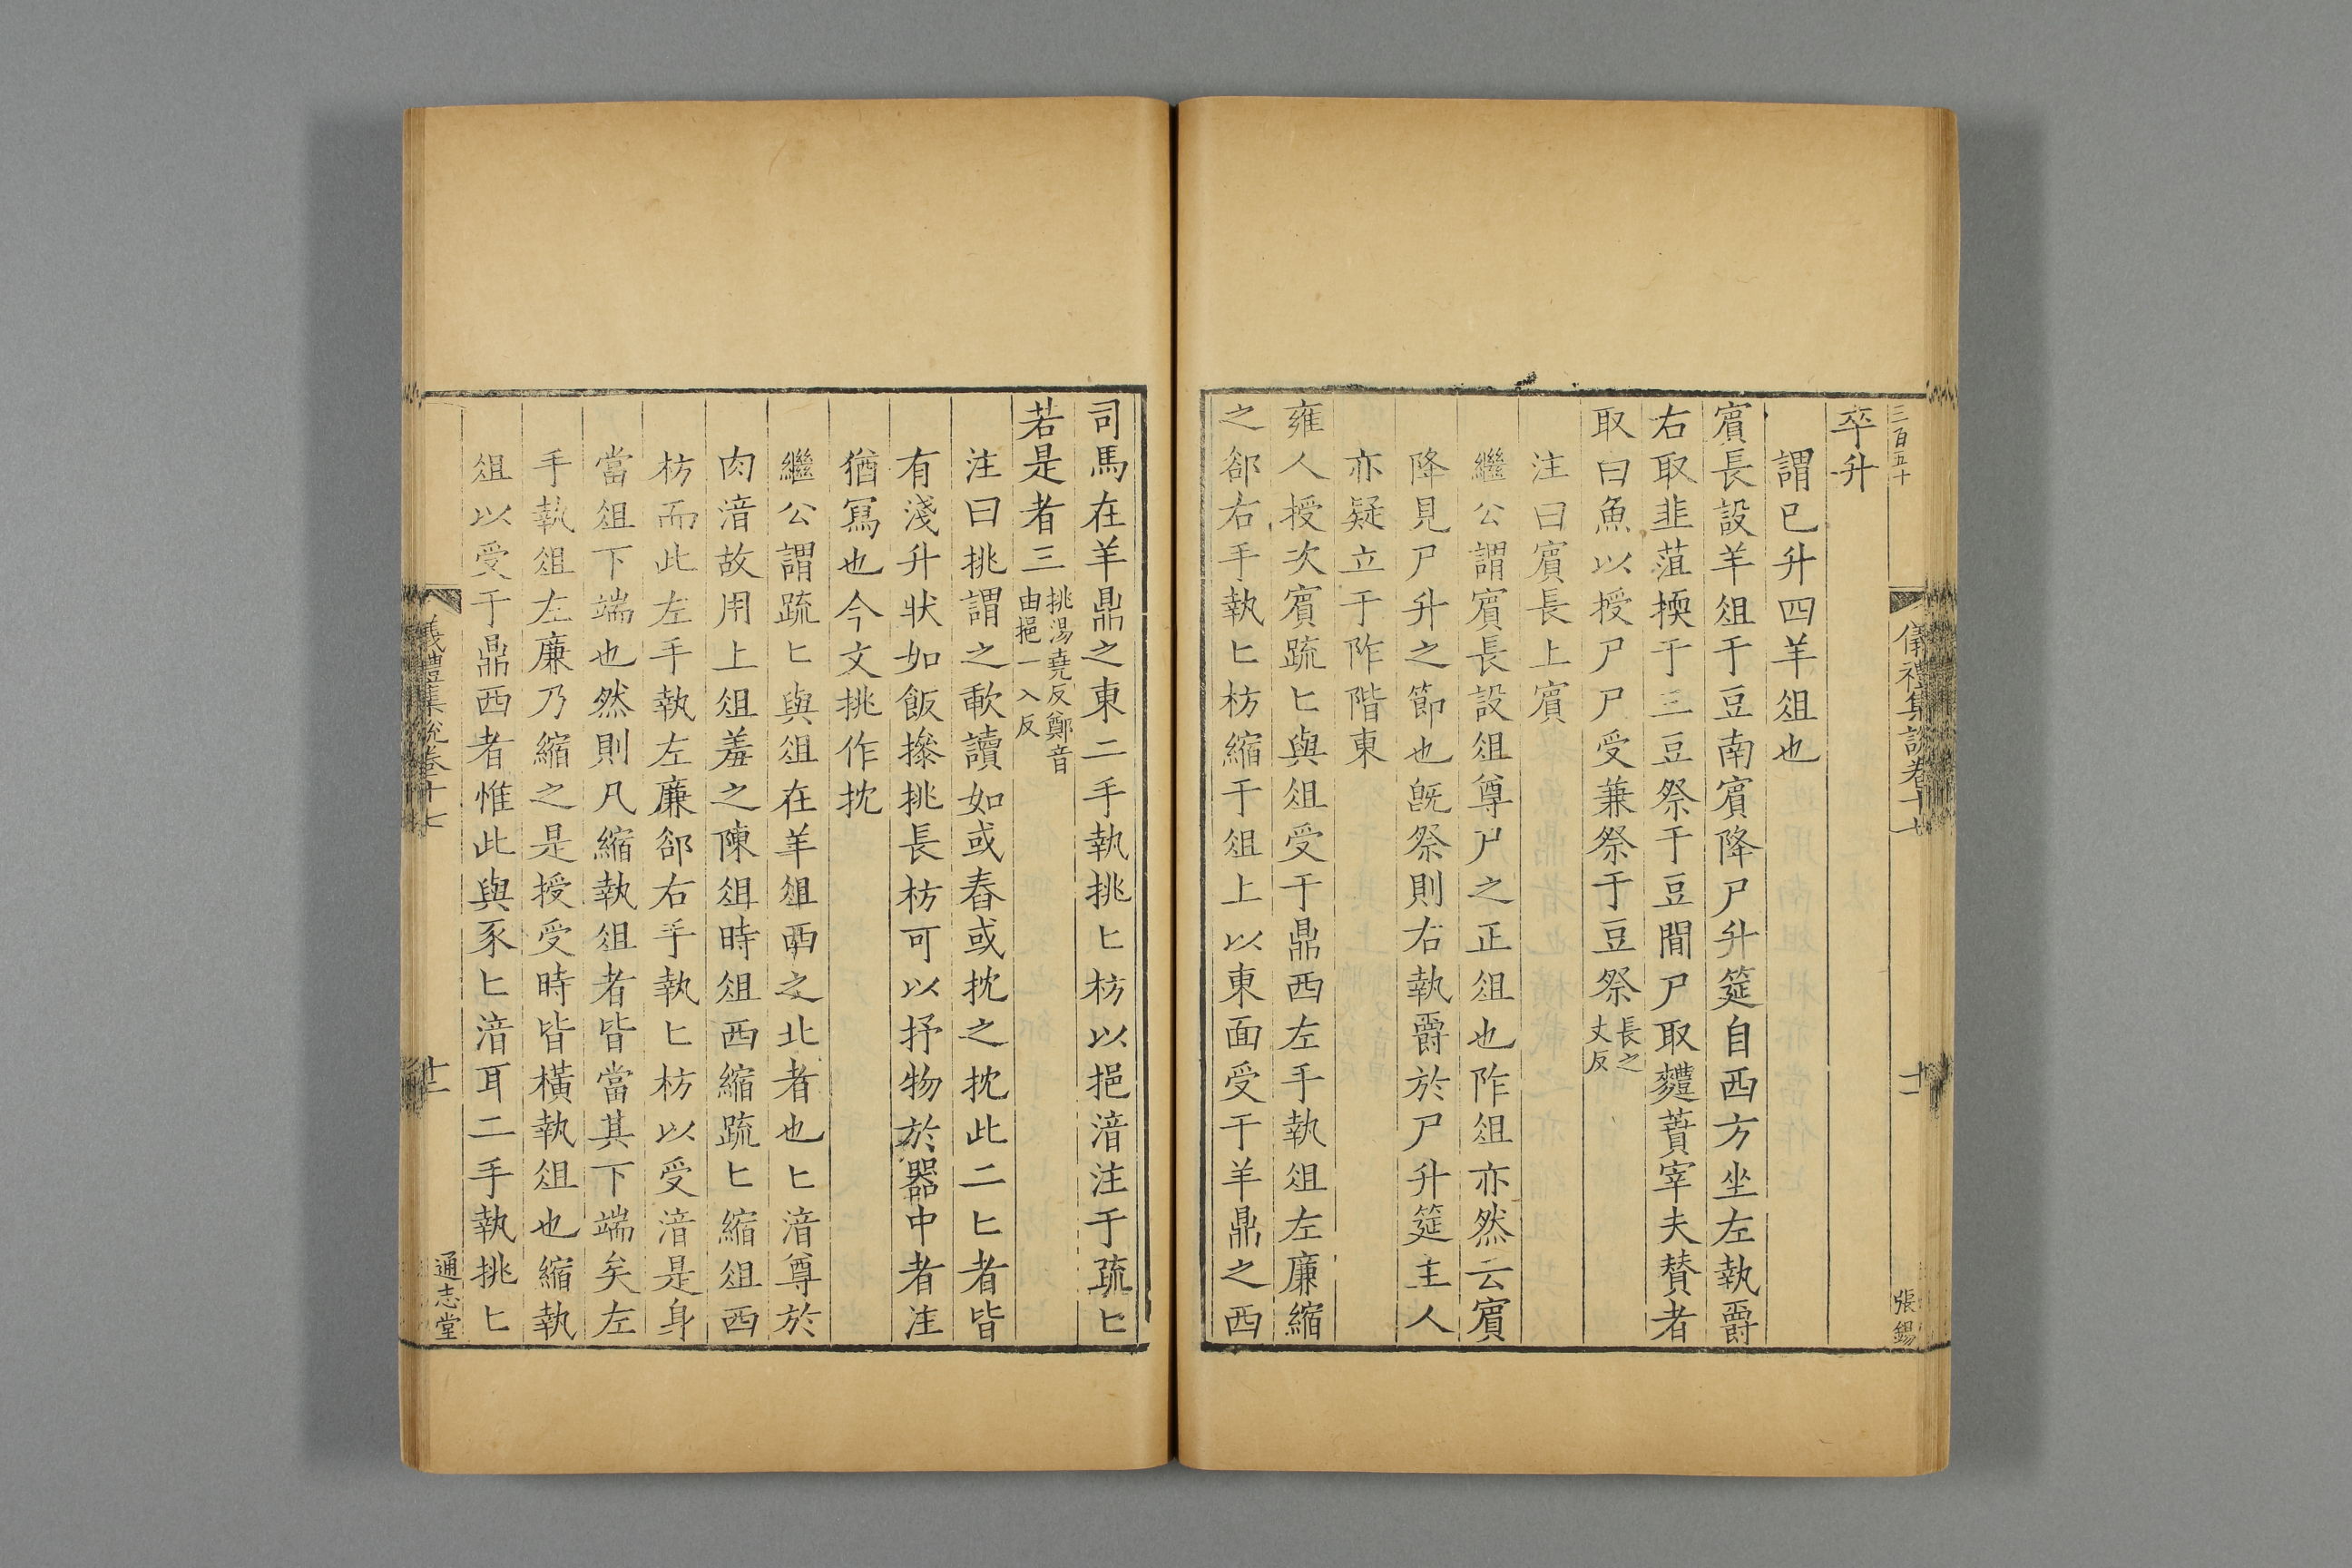 三百五十
儀禮集說卷十七
十一
張錫
卒升
謂已升四羊俎也
賓長設羊俎于豆南賓降尸升筵自西方坐左執爵
右取韭菹擩于三豆祭于豆閒尸取麷蕡宰夫贊者
取白魚以授尸尸受兼祭于豆祭長之丈反
注曰賓長上賓
繼公謂賓長設俎尊尸之正俎也阼俎亦然云賓
降見尸升之節也旣祭則右執爵於尸升筵主人
亦疑立于阼階東
雍人授次賓疏匕與俎受于鼎西左手執俎左廉縮
之郤右手執匕枋縮于俎上以東面受于羊鼎之西
司馬在羊鼎之東二手執挑匕枋以挹湆注于疏匕
若是者三挑湯堯反鄭音由挹一入反
注曰挑謂之歃讀如或舂或抌之抌此二匕者皆
有淺升狀如飯摻挑長枋可以抒物於器中者注
猶寫也今文挑作抌
繼公謂疏匕與俎在羊俎西之北者也匕湆尊於
肉湆故用上俎羞之陳俎時俎西縮疏匕縮俎西
枋而此左手執左廉郤右手執匕枋以受湆是身
當俎下端也然則凡縮執俎者皆當其下端矣左
手執俎左廉乃縮之是授受時皆橫執俎也縮執
俎以受于鼎西者惟此與豕匕湆耳二手執挑匕
儀禮集說卷十七
十二
通志堂